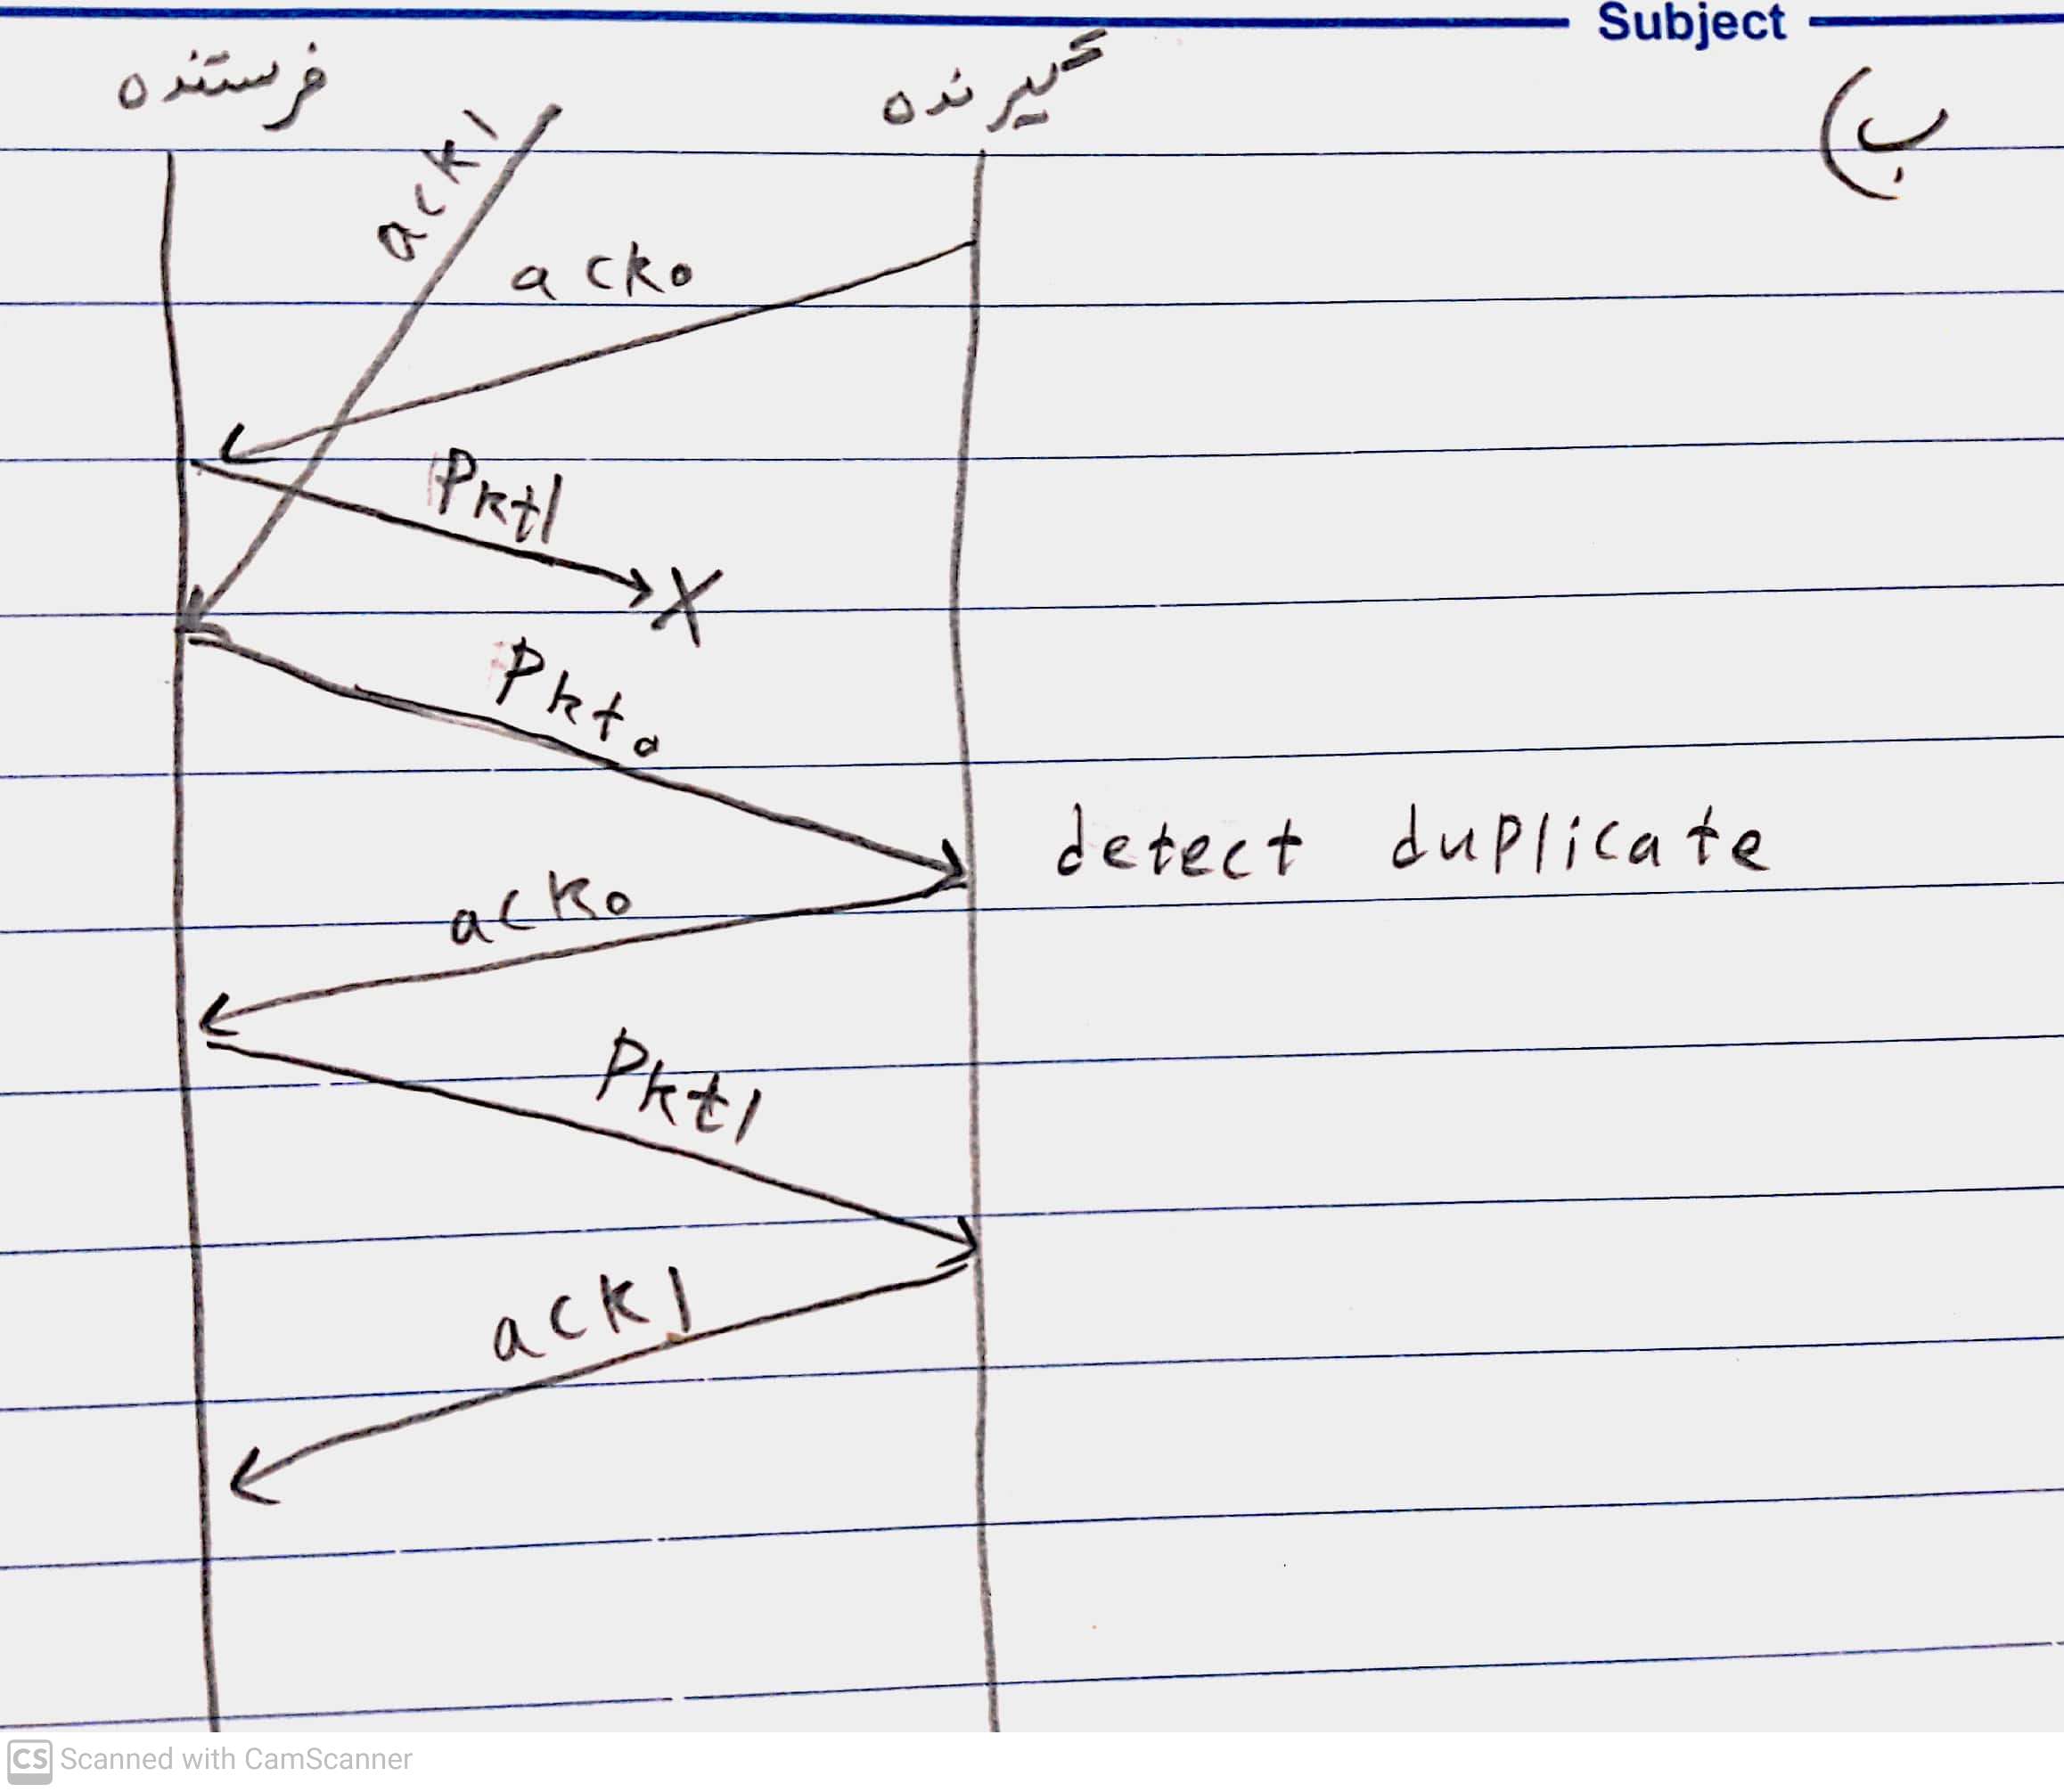 Subject
ب)
فرستنده گیرنده
ack1
ack0
Pkt1
X
Pkt0
detect duplicate
ack0
Pkt1
ack1
CS Scanned with CamScanner